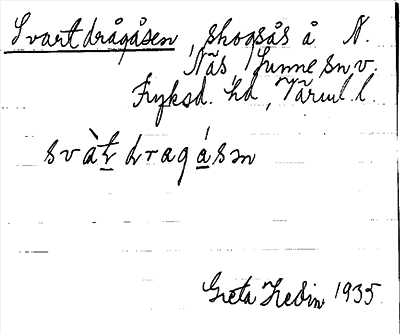 Svartdrågåsen, skogsås å N.
Nås, Sunne snv.
Fryksd. hd, Värml. l.
svàt̲ dragá̲sn
Greta Hedin 1935.